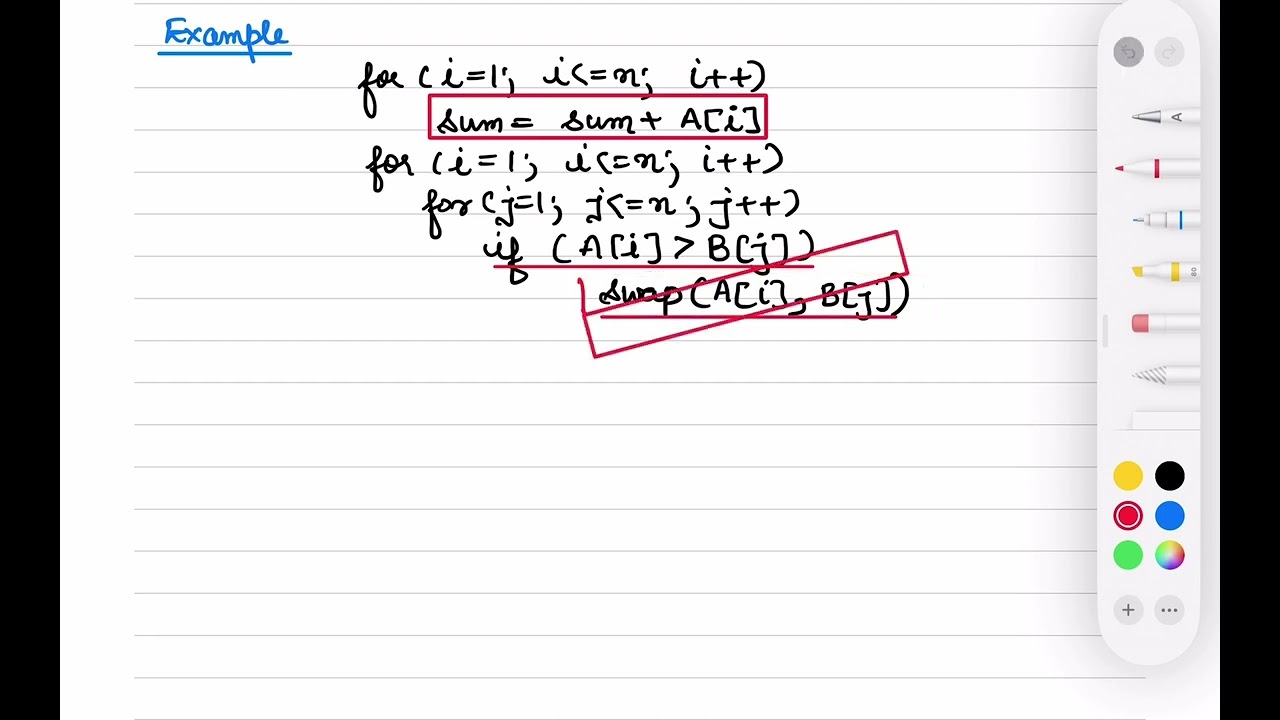 Example
for (i=1; i<=n; i++)
sum = sum + A[i]
for (i=1; i<=n; i++)
for(j=1; j<=n; j++)
if (A[i] > B[j])
swap(A[i], B[j])
A
80